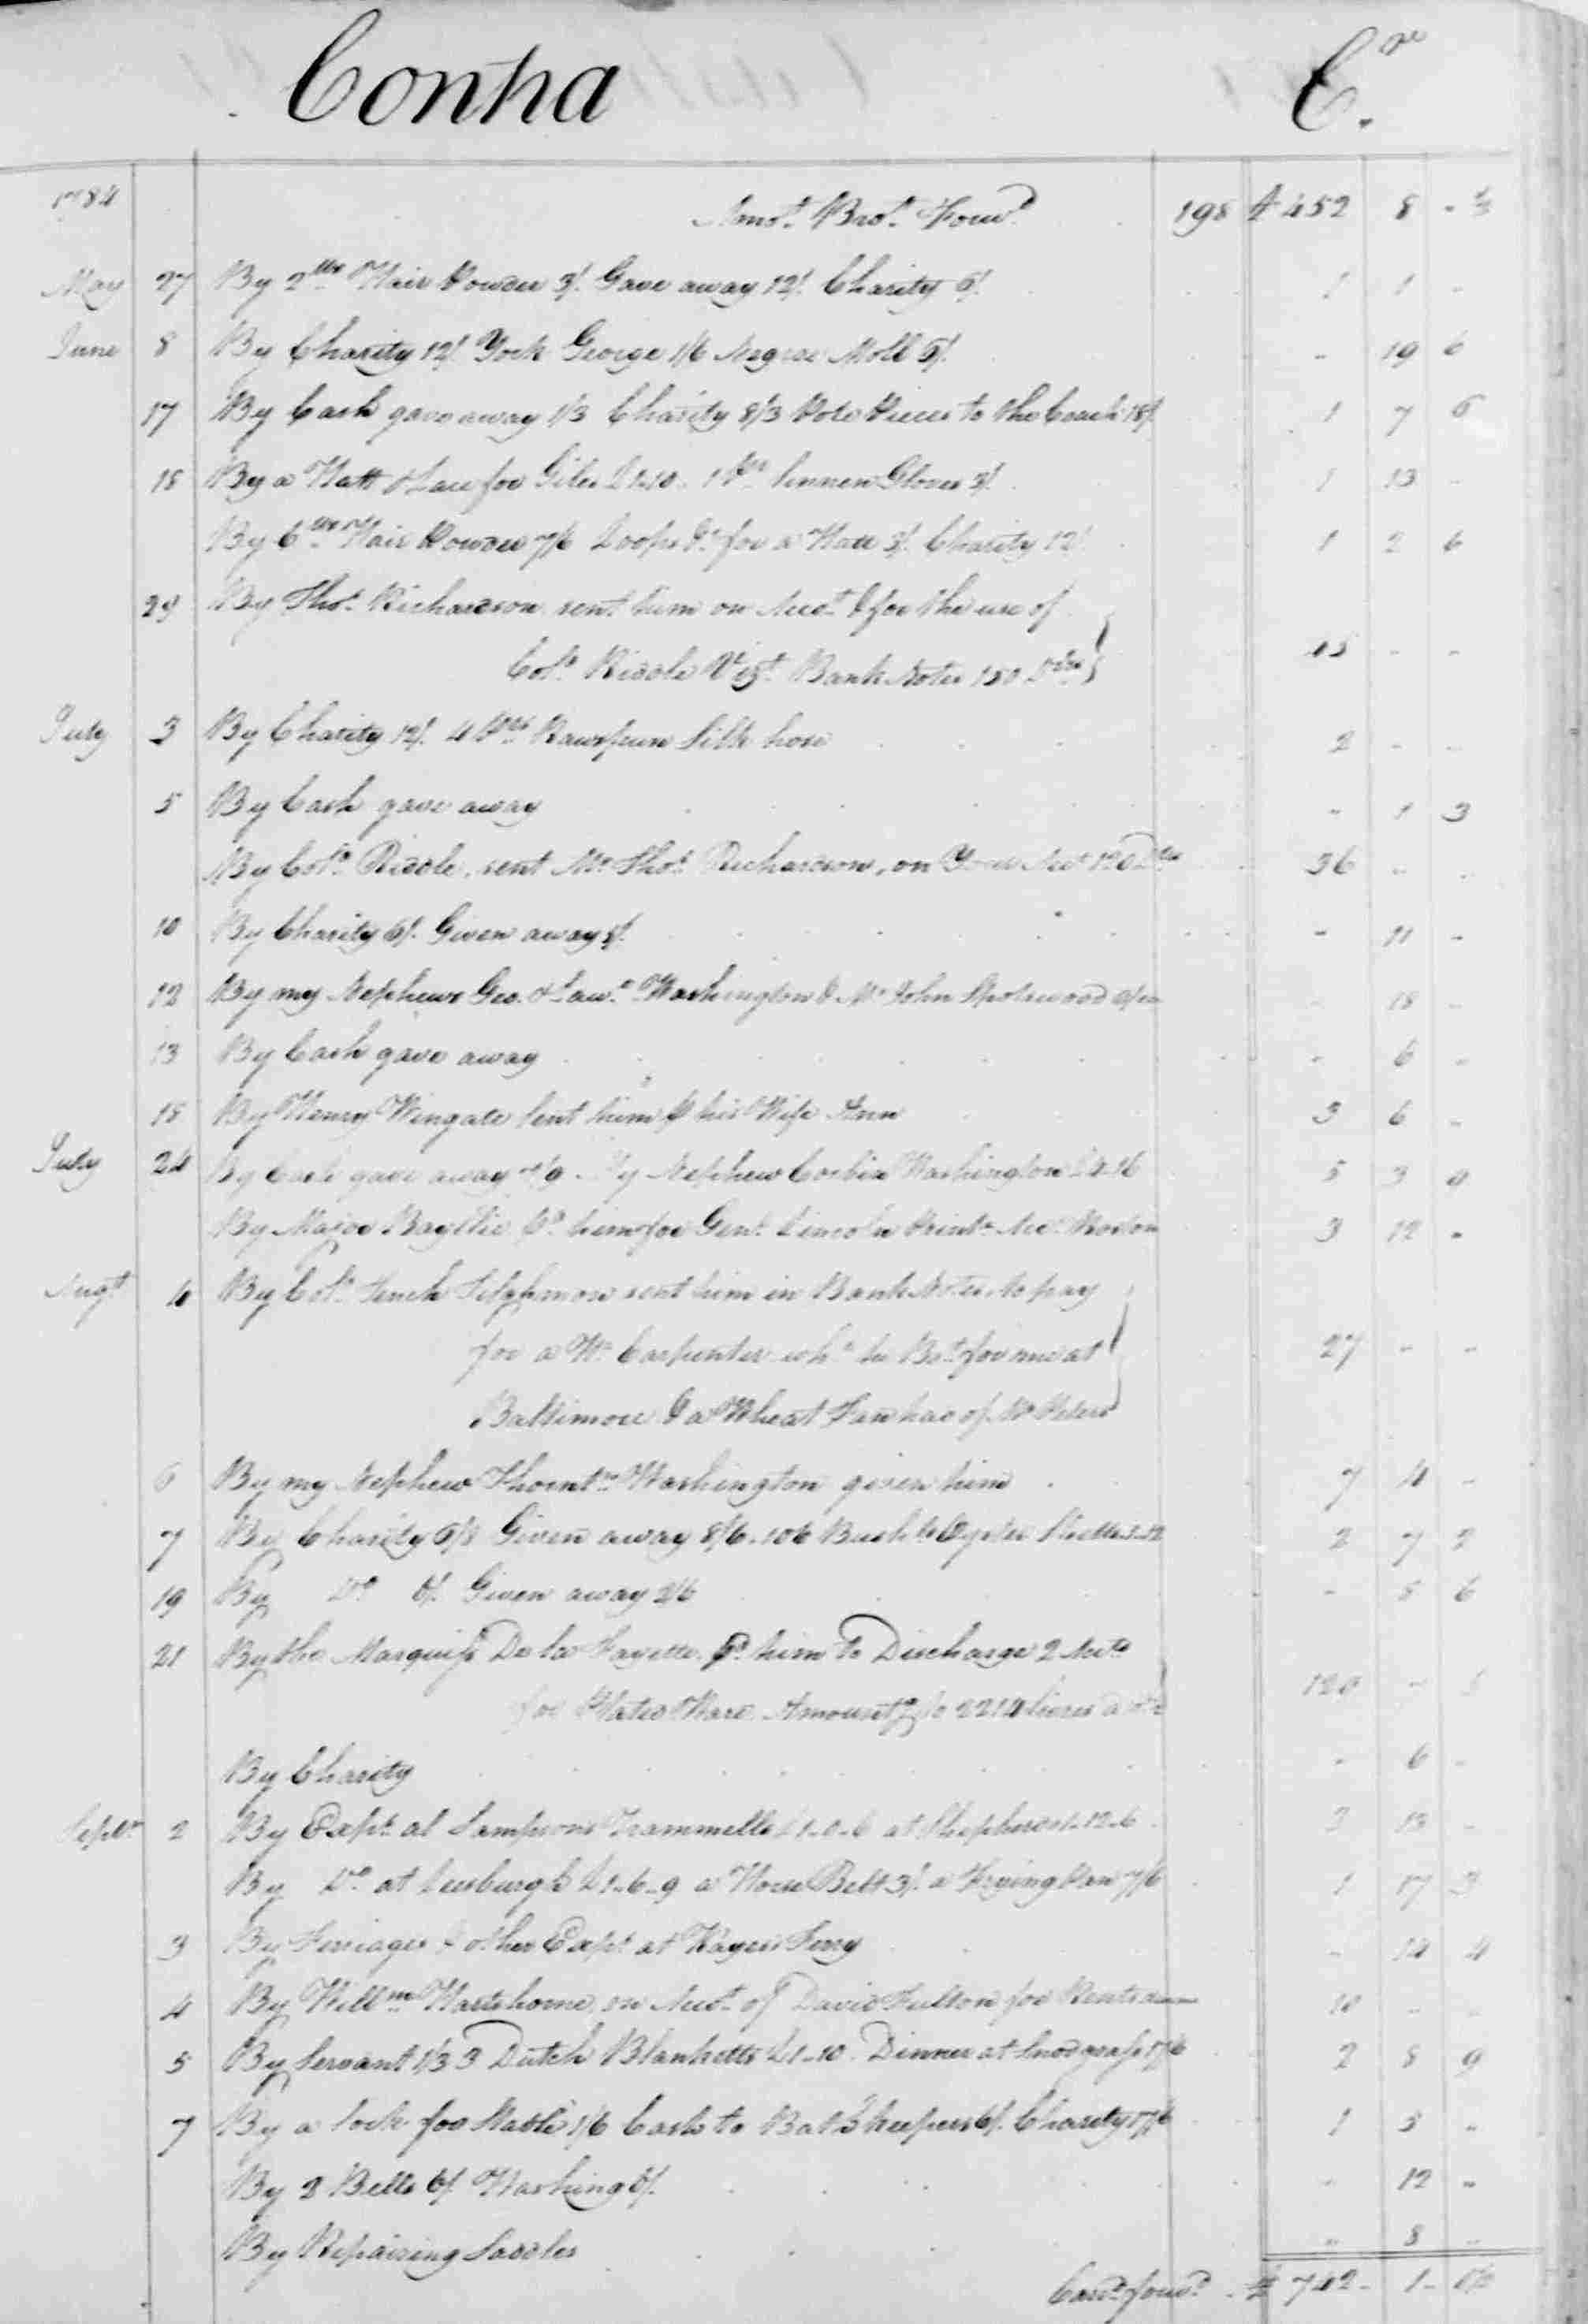 Contra Cr.
1784 Amot. Brot. Forwd. 198 £452 8
May 27 By 2 lbs Hair Powder 3/. Gave away 12/. Charity 6/. 1 1 -
June 8 By Charity 12/. York George 1/6 Negroe Moll 6/. - 19 6
17 By Cash gave away 1/3 Charity 8/3 Pole Pieces to the Coach 18/. 1 7 6
18 By a Hatt & Lace for Giles £1.10. 1 pr. linnen Gloves 3/. 1 13 -
By 6 lbs Hair Powder 7/6 Loops &c. for a Hatt 3/. Charity 12/. 1 2 6
29 By Thos. Richardson sent him on Acct. & for the use of
Colo. Biddle Vizt. Bank Notes 150 Drs 45 - -
July 3 By Charity 12/. 4 prs. Rawspun Silk hose 2 - -
5 By Cash gave away - 1 3
By Colo. Biddle, sent Mr Thos. Richardson, on Acct 120 Drs 36 - -
10 By Charity 6/. Given away 5/. - 11 -
12 By my Nephews Geo. & Lawe. Washington & Mr John Spotswood - 18 -
13 By Cash gave away - 6 -
15 By Henry Wingate lent him & his Wife Ann 3 6 -
July 24 By Cash gave away 7/9. My Nephew Corbin Washington £4.16 5 3 9
By Major Bayllie pd. him for Genl. Lincoln Printr. Acct. Boston 3 12 -
Augt 4 By Colo. Tench Tilghman sent him in Bank Notes to pay
for a He. Carpenter wh. he Bot. for me at 27 - -
Baltimore & a Wheat Fan had of Mr Peters
6 By my Nephew Thorntn. Washington given him 7 4 -
7 By Charity 6/8 Given away 8/6. 106 Bushls Oyster Shells 1-12 2 7 2
19 By Do. 6/. Given away 2/6 - 8 6
21 By the Marquiss De la Fayette pd. him to Discharge 2 Accts
for Plated Ware Amountg. to 2214 livres 120 -
By Charity - 6 -
Septr. 2 By Exps. at Sampson Trammells £1-0-6 at Shepherds 1-12-6 2 13 -
By Do. at Leesburgh £1-6-9 a Horse Bell 3/. a Frying Pan 7/6 1 17 3
3 By Ferriages & other Exps. at Keyes's Ferry - 14 4
4 By Willm. Hartshorne, on Acct. of David Fulton for Rents 10 - -
5 By Servant 1/3 3 Dutch Blanketts £1-10. Dinner at Snodgrass 17/6 2 8 9
7 By a lock for Stable 1/6 Cash to Bath Keepers 6/. Charity 17/6 1 5 -
By 2 Bells 6/. Washing 6/. - 12 -
By Repairing Saddles - 8 -
Card. forwd. £742 - 1 -